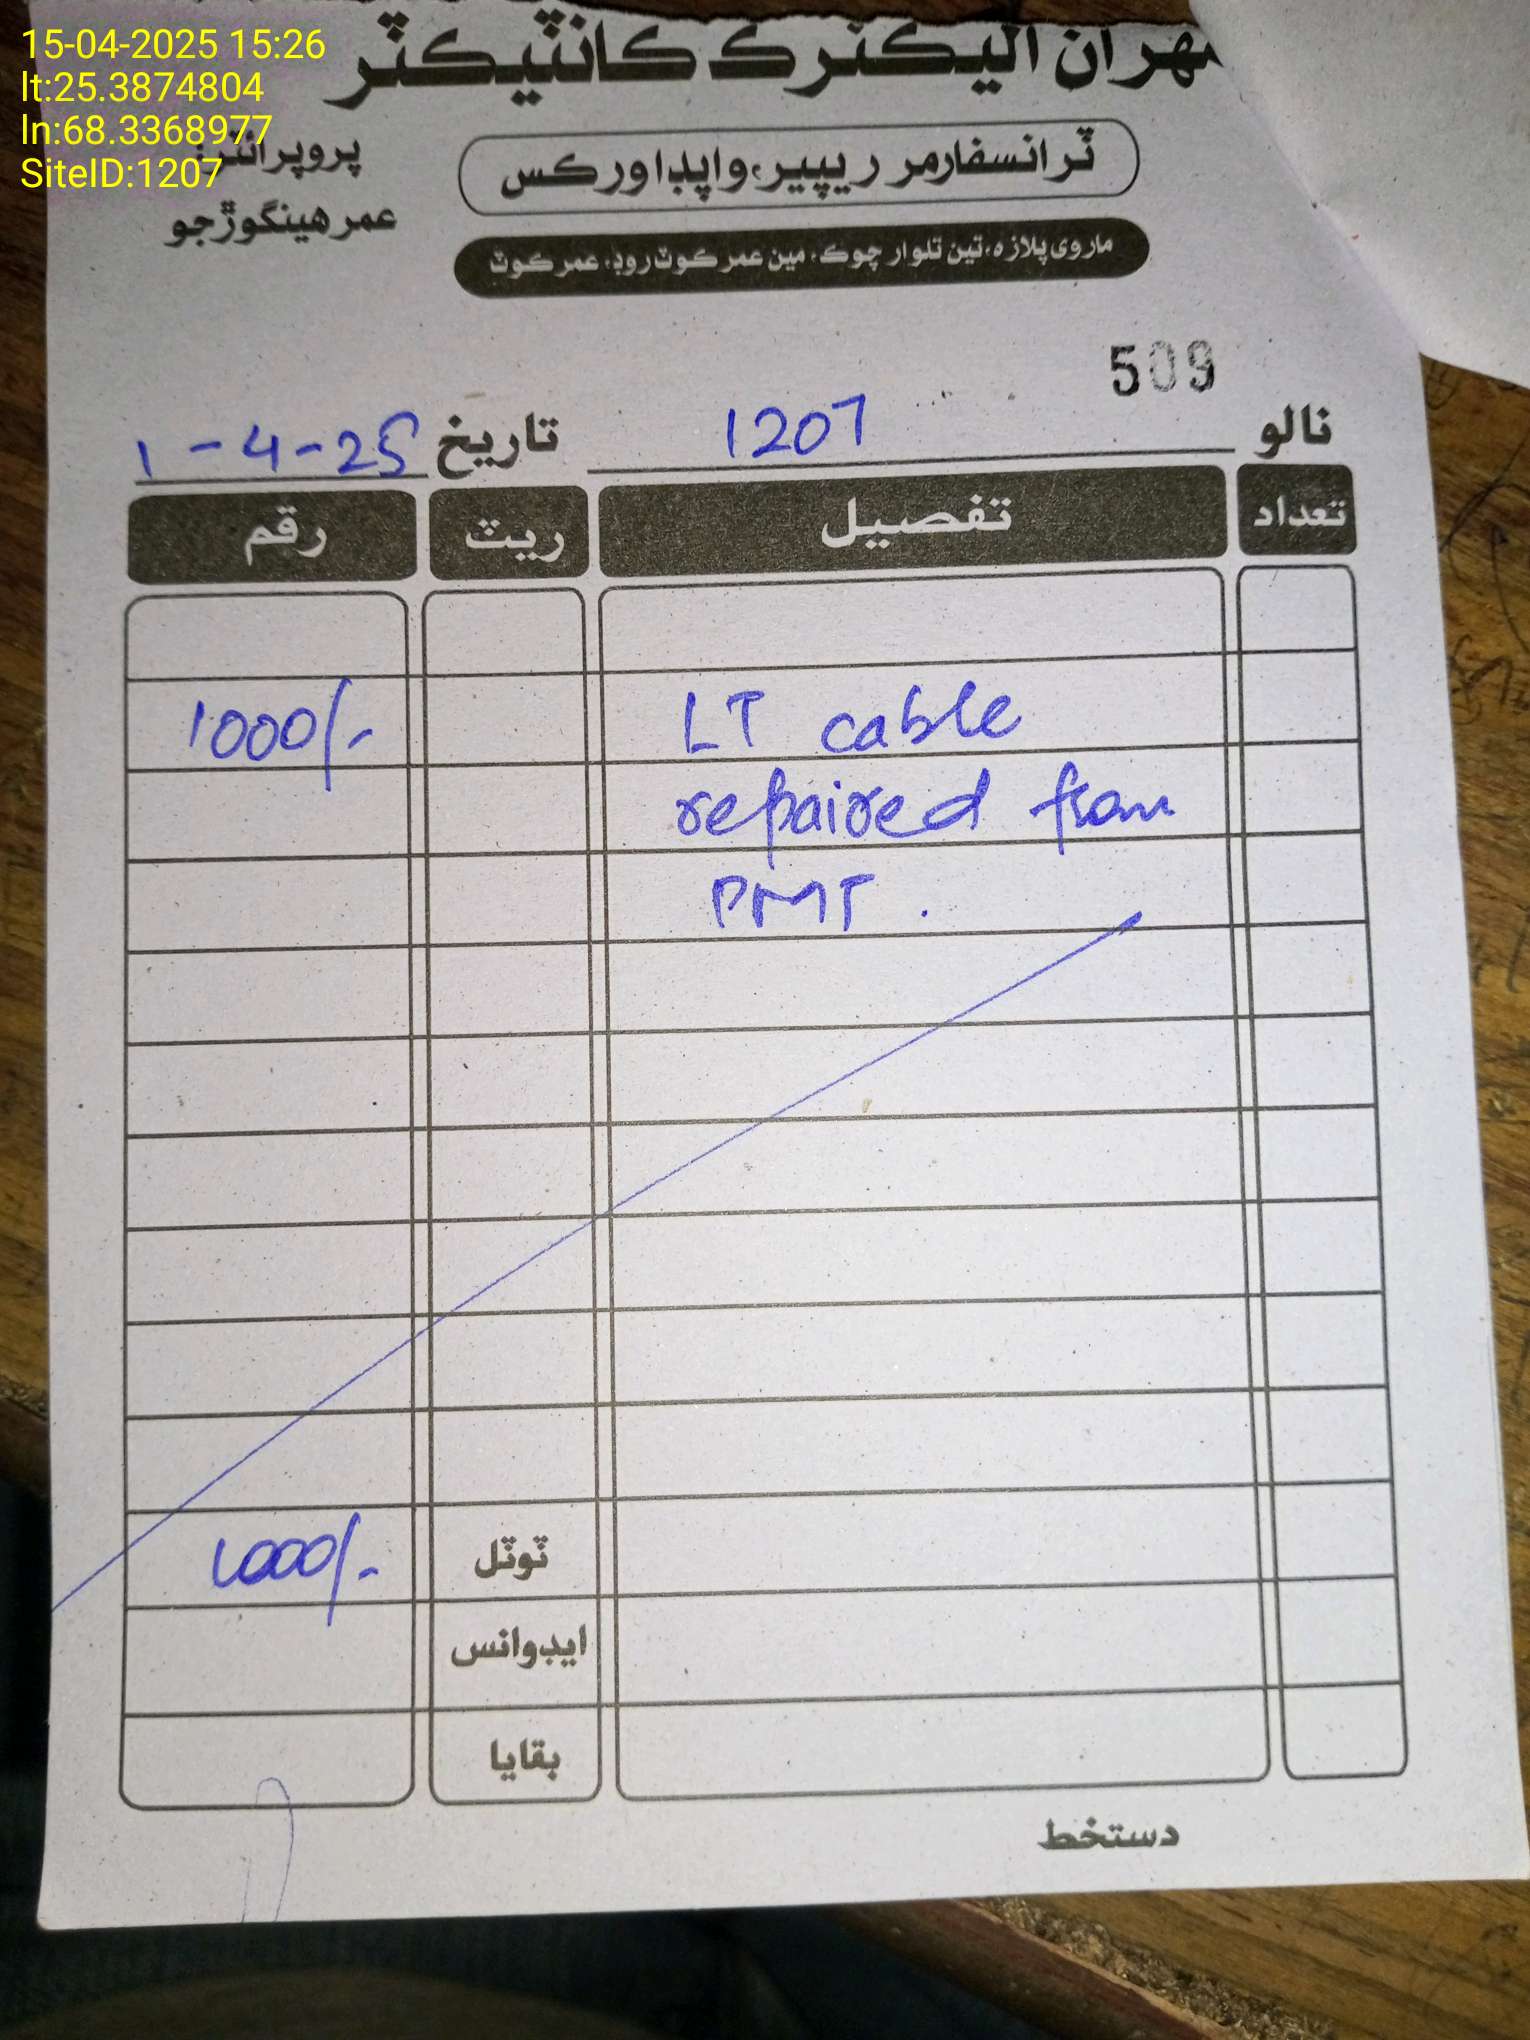 15-04-2025 15:26
lt:25.3874804
ln:68.3368977
SiteID:1207
مهران اليڪٽرڪ ڪانٽيڪٽر
ٽرانسفارمر ريپيئر، واپڊا ورڪس
پروپرائٽر:
عمر هينگورجو
ماروي پلازه، ٽين تلوار چوڪ، مين عمرڪوٽ روڊ، عمرڪوٽ
509
نالو 1207 تاريخ 1-4-25
تعداد تفصيل ريٽ رقم
LT cable 1000/-
repaired from
PMT.
ٽوٽل 1000/-
ايڊوانس
بقايا
دستخط